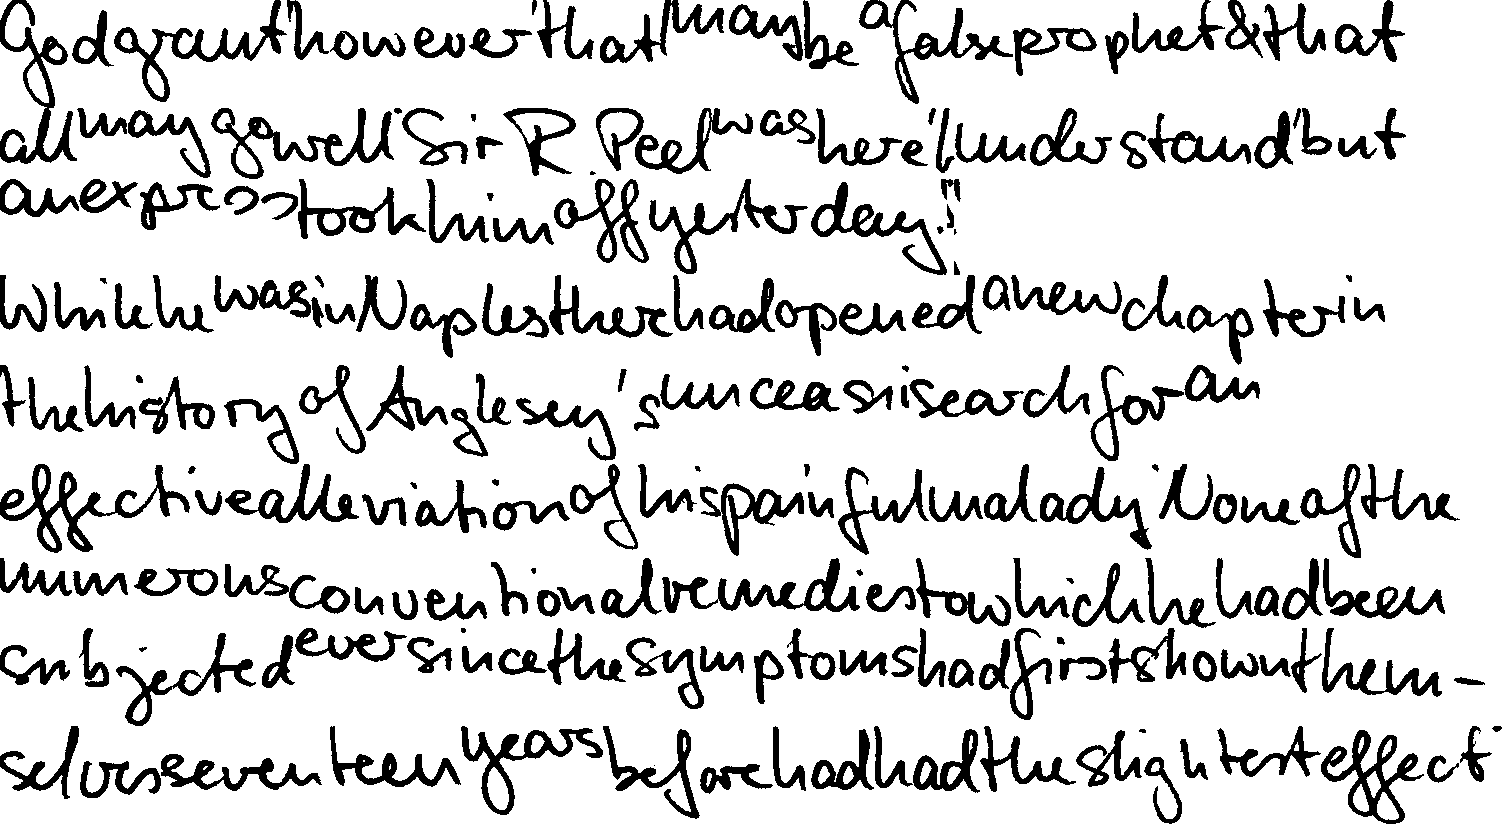 God grant however that I may be a false prophet & that
all may go well Sir R. Peel was here I understand but
an express took him off yesterday."
While he was in Naples there had opened a new chapter in
the history of Anglesey's unceasing search for an
effective alleviation of his painful malady None of the
numerous conventional remedies to which he had been
subjected ever since the symptoms had first shown them-
selves seventeen years before had had the slightest effect